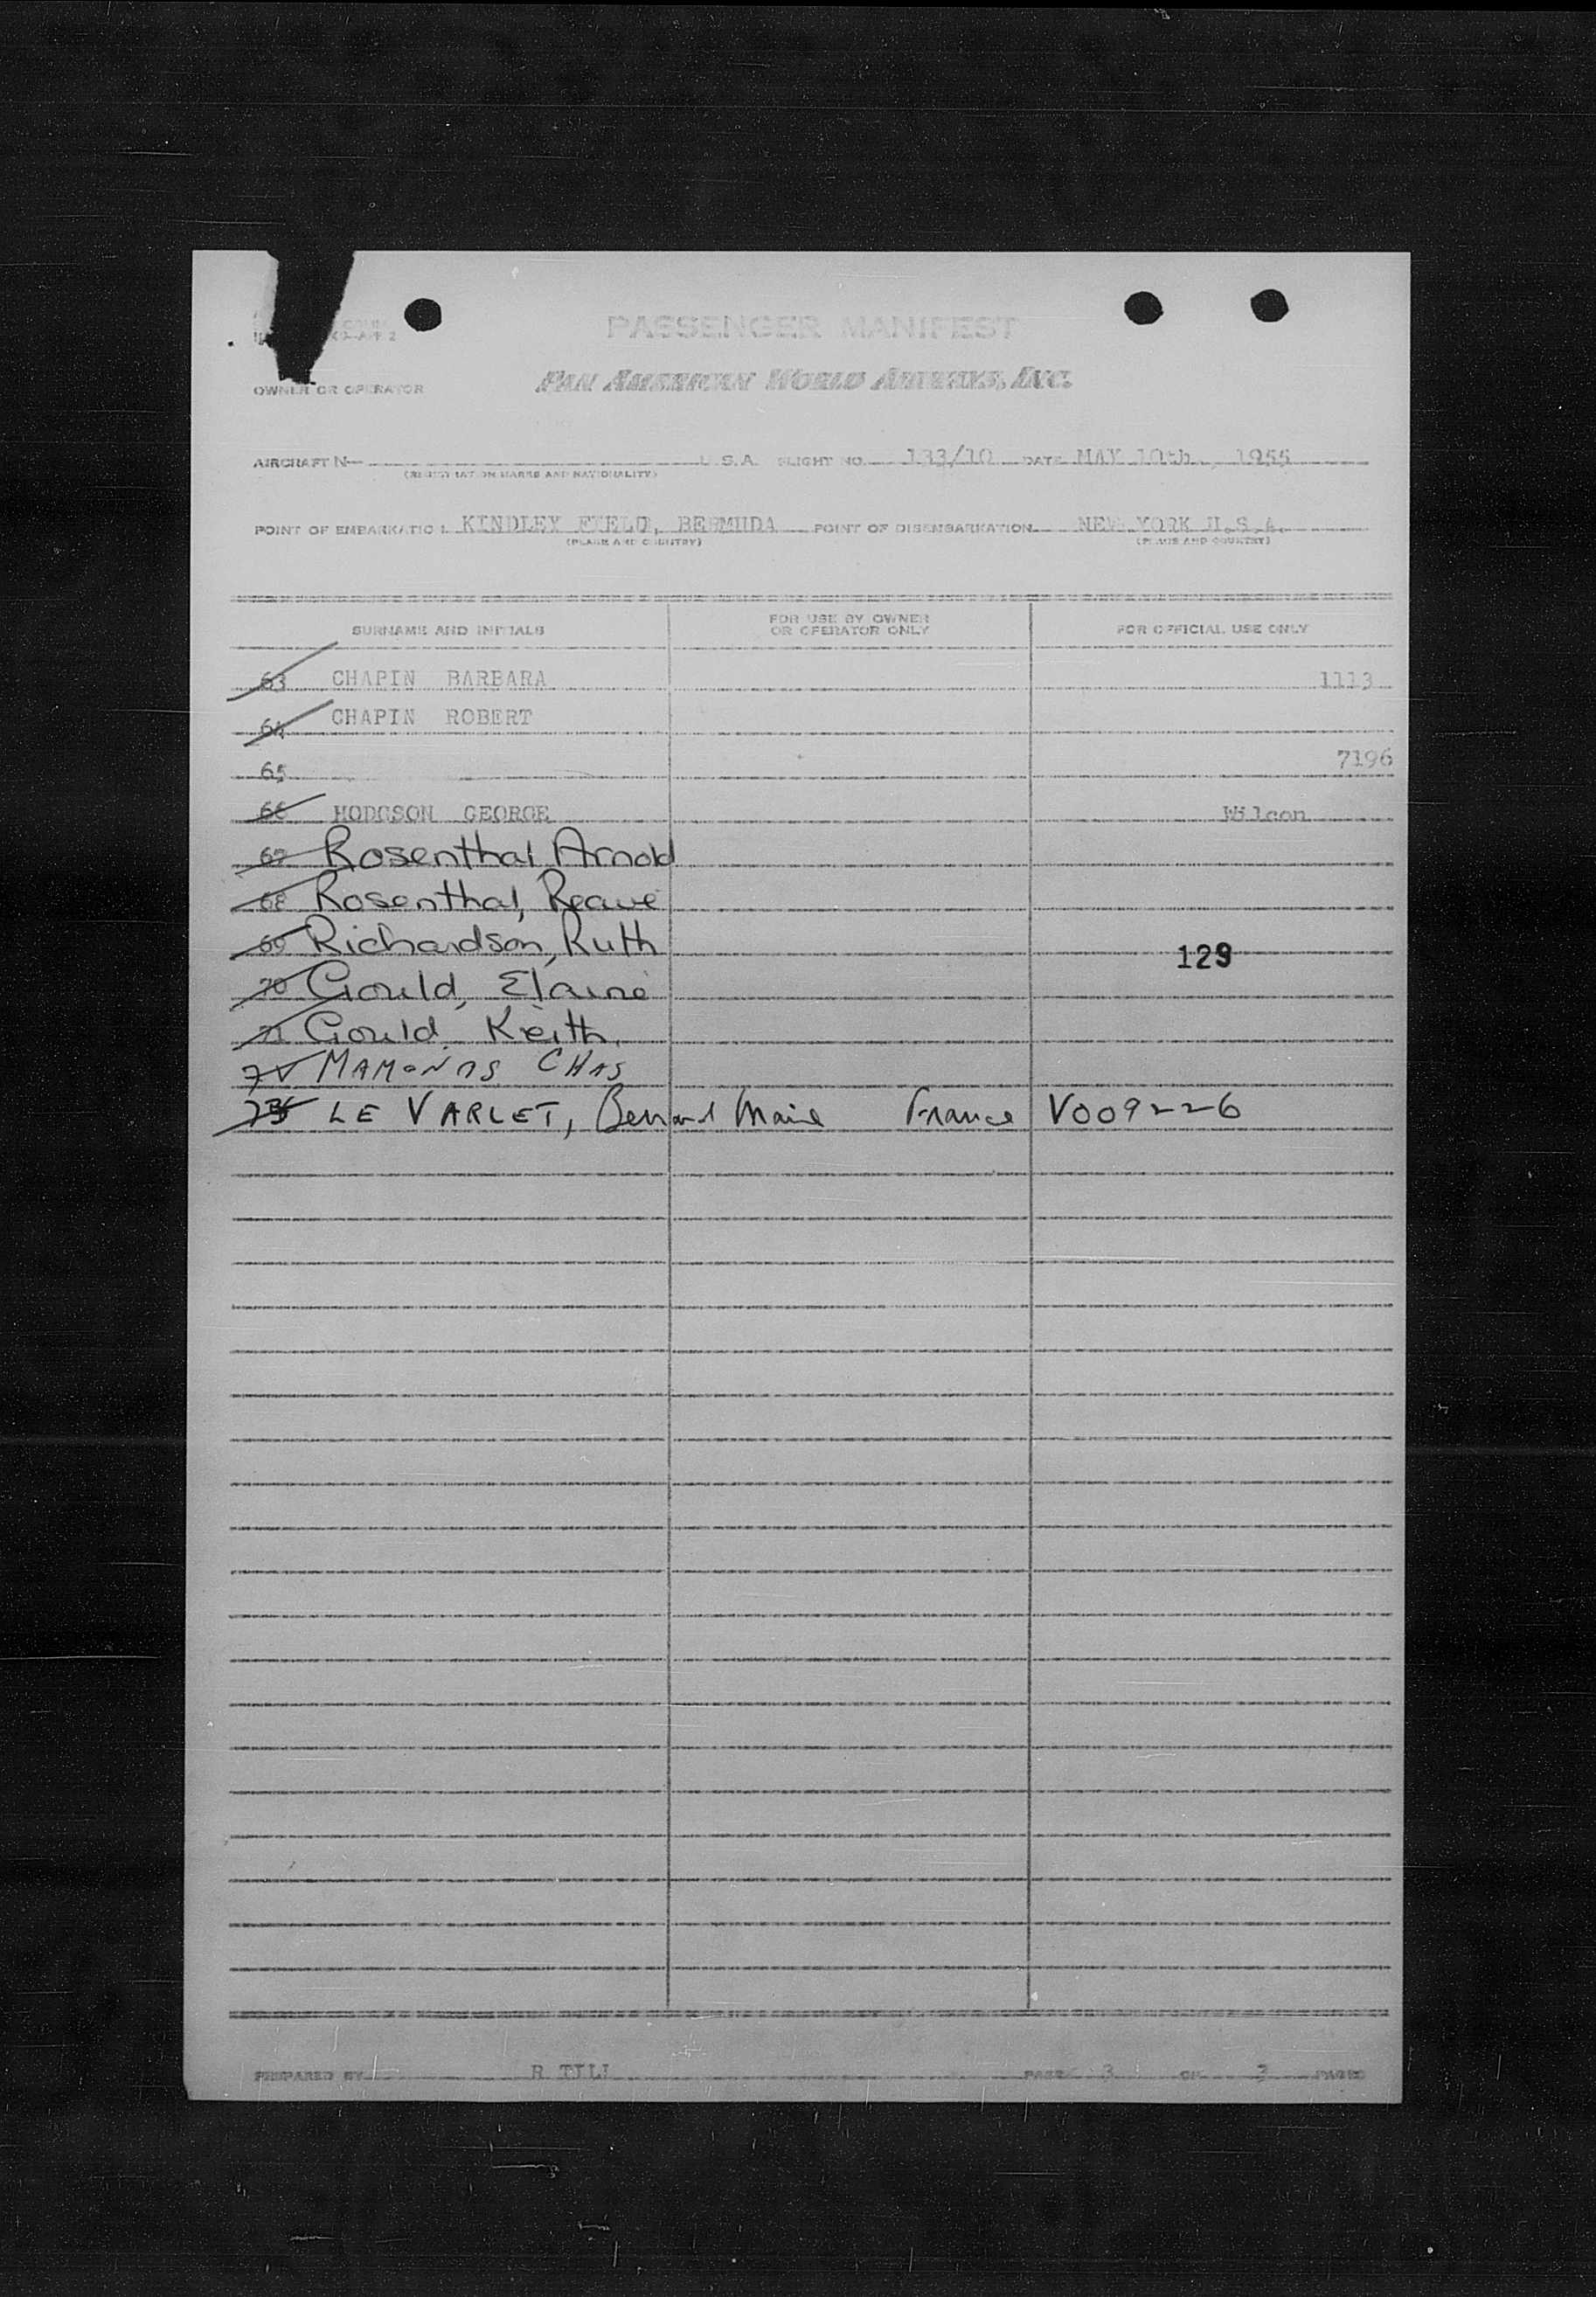 PASSENGER MANIFEST
OWNER OR OPERATOR PAN AMERICAN WORLD AIRWAYS, INC.
AIRCRAFT N U.S.A. FLIGHT NO. 133/10 DATE MAY 10th, 1955
(REGISTRATION MARKS AND NATIONALITY)
POINT OF EMBARKATION KINDLEY FIELD, BERMUDA POINT OF DISEMBARKATION NEW YORK U.S.A.
(PLACE AND COUNTRY) (PLACE AND COUNTRY)
SURNAME AND INITIALS FOR USE BY OWNER OR OPERATOR ONLY FOR OFFICIAL USE ONLY
63 CHAPIN BARBARA 1113
64 CHAPIN ROBERT
65 7196
66 HODGSON GEORGE Wilcon
67 Rosenthal, Arnold
68 Rosenthal, Reave
69 Richardson, Ruth 129
70 Gould, Elaine
71 Gould, Keith
72 MAMONAS CHAS
73 LE VARLET, Bernard Marie France V009226
PREPARED BY R PAGE 3 OF 3 PAGES